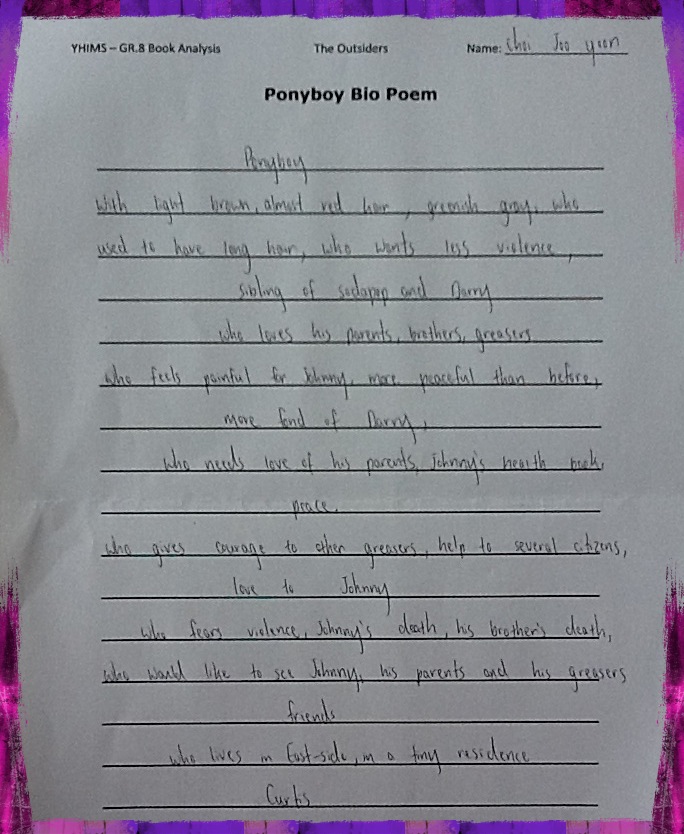 YHIMS – GR.8 Book Analysis The Outsiders Name: Choi Joo yoon
Ponyboy Bio Poem
Ponyboy
With light brown, almost red hair, greenish gray, who
used to have long hair, who wants less violence,
sibling of sodapop and Darry
who loves his parents, brothers, greasers
who feels painful for Johnny, more peaceful than before,
more fond of Darry,
who needs love of his parents, Johnny's health back,
peace.
who gives courage to other greasers, help to several citizens,
love to Johnny
who fears violence, Johnny's death, his brother's death,
who would like to see Johnny, his parents and his greasers
friends
who lives in East-side, in a tiny residence
Curtis